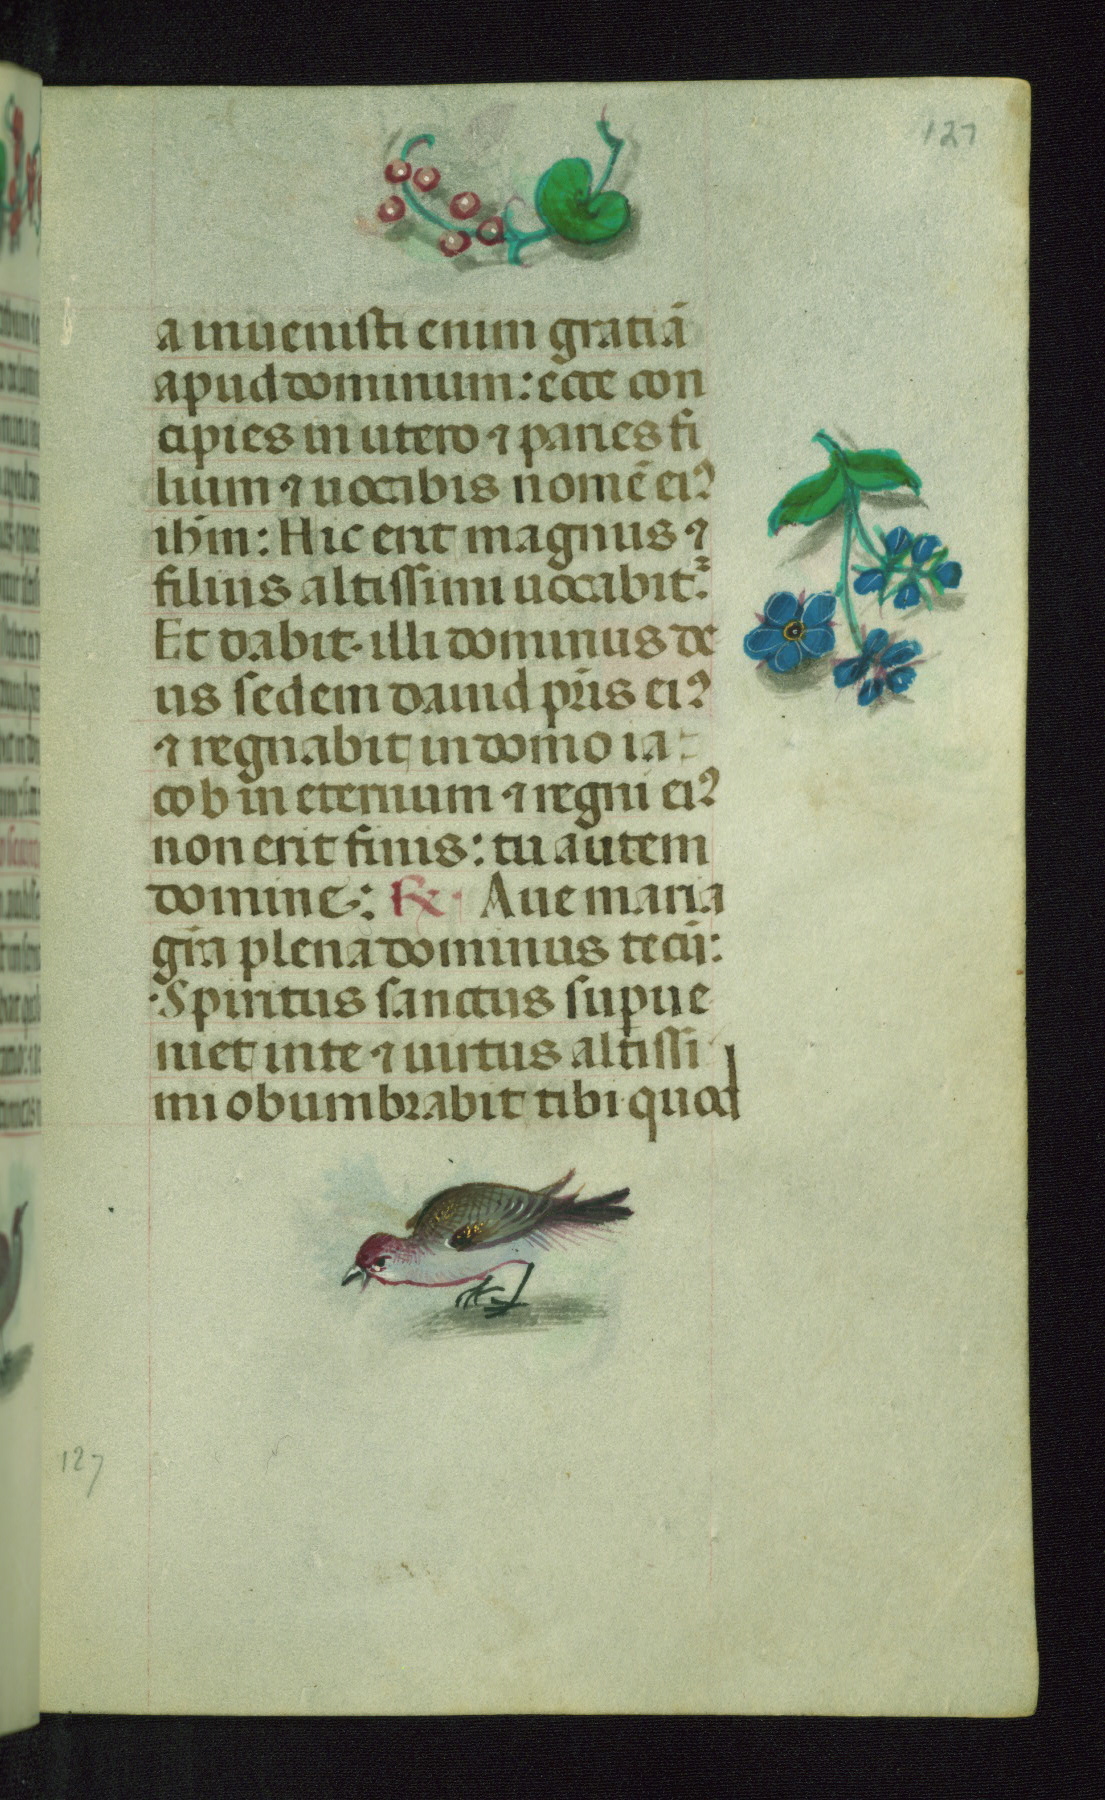 127
a inuenisti enim gratiā
apud dominum: ecce con
cipies in utero ⁊ paries fi
lium ⁊ uocabis nomē eiꝰ
ihm̄: Hic erit magnus ⁊
filius altissimi uocabit᷑.
Et dabit illi dominus de
us sedem dauid pr̄is eiꝰ
⁊ regnabit in domo ia
cob in eternum ⁊ regni eiꝰ
non erit finis: tu autem
domine: ℟. Aue maria
gr̄a plena dominus tecū:
Spiritus sanctus supue
niet in te ⁊ uirtus altissi
mi obumbrabit tibi quod
127